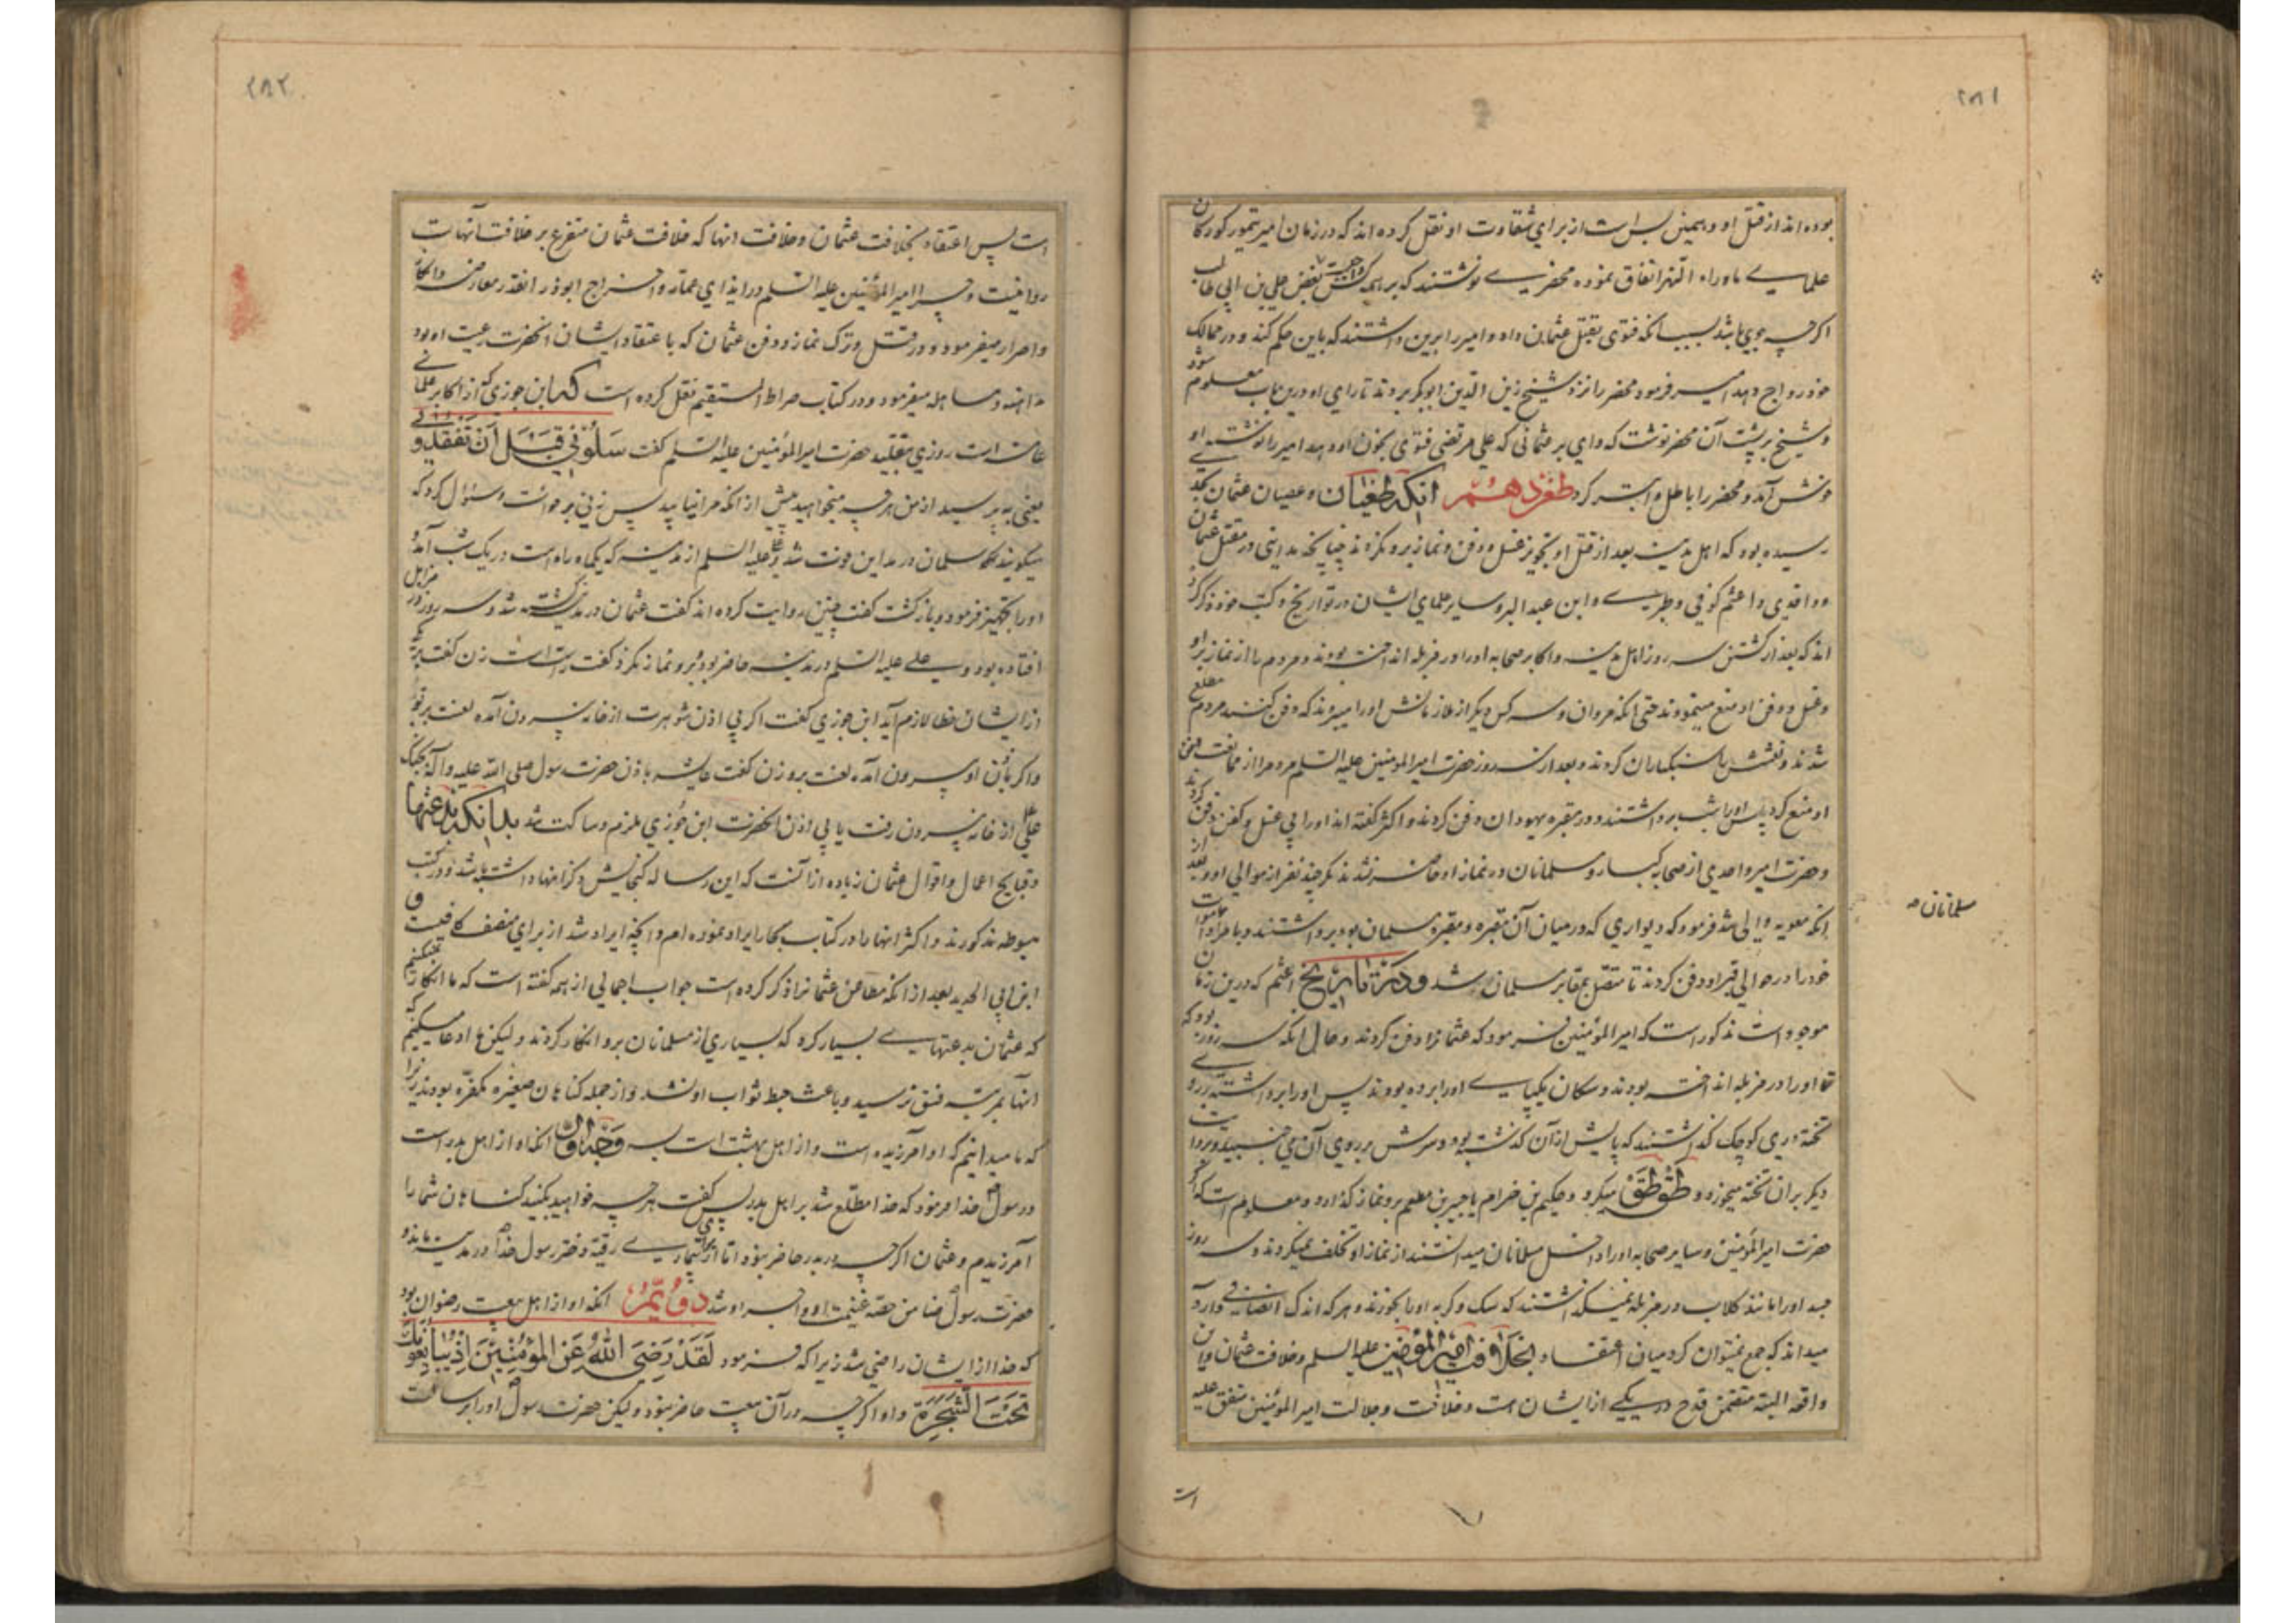 ۲۸۱
بوده‌اند از قتل او و همین بس است از برای شقاوت او و نقل کرده‌اند که در زمان امیر تیمور کورکان
علمای ماوراء النهر اتفاق نموده محضری نوشتند که بر همه کس واجبست بغض علی بن ابی طالب
اگرچه جوی باشد بسبب آنکه فتوی بقتل عثمان داد و امیر را برین داشتند که باین حکم کند و در ممالک
خود رواج دهد امیر فرمود محضر را نزد شیخ زین الدین ابوبکر بردند تا رای او درین باب معلوم شود
شیخ بر پشت آن محضر نوشت که وای بر عثمانی که علی مرتضی فتوی بخون او دهد امیر را نوشته او
خوش آمد و محضر را باطل و ابتر کرد طعن دهم آنکه طغیان و عصیان عثمان بحدی
رسیده بود که اهل مدینه بعد از قتل او تجویز غسل و دفن و نماز برو نکردند چنانچه مداینی در مقتل عثمان
و واقدی و اعثم کوفی و طبری و ابن عبد البر و سایر علمای ایشان در تواریخ و کتب خود ذکر کرده
اند که بعد از کشتن سه روز اهل مدینه و اکابر صحابه او را در مزبله انداخته بودند و مردم را از نماز برو
و غسل و دفن او منع مینمودند حتی آنکه مروان و سه کس دیگر از ملازمانش او را میبردند که دفن کنند مردم مطلع
شدند و نعشش را سنکباران کردند و بعد از سه روز حضرت امیر المؤمنین علیه السلام مردم را از ممانعت دفن
او منع کرد پس او را شب برداشتند و در مقبره یهودان دفن کردند و اکثر گفته‌اند او را بی غسل و کفن دفن کردند
و حضرت امیر و احدی از صحابه کبار و مسلمانان در نماز او حاضر نشدند مگر چند نفر از موالی او و بعد از
آنکه معویه والی شد فرمود که دیواری که در میان آن مقبره و مقبره مسلمانان بود برداشتند و با مر او اموات
خود را در حوالی قبر او دفن کردند تا متصل بمقابر مسلمانان شد و در تاریخ اعثم که درین زمان
موجود است مذکور است که امیر المؤمنین فرمود که عثمان را دفن کردند و حال آنکه سه روز بود که
او را در مزبله انداخته بودند و سکان یکپای او را برده بودند پس او را برداشتند بر روی
تخته دری کوچک گذاشتند که پایش از آن گذشته بود و سرش بر روی آن می جنبید
دیگر بر آن تخته میخورد و طق طق میکرد و حکیم بن خرام یا جبیر بن مطعم برو نماز گذارد و معلوم است که اگر
حضرت امیر المؤمنین و سایر صحابه او را داخل مسلمانان میدانستند از نماز او تخلف نمیکردند و سه روز
جسد او را مانند کلاب در مزبله نمیگذاشتند که سک و گربه او را بخورند و هر که اندک انصافی دارد
میداند که جمع نمیتوان کرد میان اعتقاد بخلافت امیر المؤمنین علیه السلام و خلافت عثمان و این
واقعه البته متضمن قدح در یکی از ایشان است و خلافت و جلالت امیر المؤمنین متفق علیه
است
مسلمانان
۲۸۲
است پس اعتقاد بخلافت عثمان و خلافت آنها که خلافت عثمان متفرع بر خلافت آنهاست
روا نیست و چرا امیر المؤمنین علیه السلام در ایذای عمار و اخراج ابوذر آنقدر معارضه و انکار
و اصرار میفرمود و در قتل و ترک نماز و دفن عثمان که باعتقاد ایشان آنحضرت رعیت او بود
مداهنه و مساهله میفرمود و در کتاب صراط المستقیم نقل کرده است که ابن جوزی که از اکابر علمای
عامه است روزی بتقلید حضرت امیر المؤمنین علیه السلام گفت سَلُونِي قَبْلَ أَنْ تَفْقِدُونِي
یعنی بپرسید از من هر چه میخواهید پیش از آنکه مرا نیابید پس زنی برخواست و سئوال کرد که
میگویند که سلمان در مداین فوت شد و علی علیه السلام از مدینه که یکماه راه است در یک شب آمد و
او را تجهیز فرمود و بازگشت گفت چنین روایت کرده‌اند گفت عثمان در مدینه کشته شد و سه روز در مزابل
افتاده بود و علی علیه السلام در مدینه حاضر بود و برو نماز نکرد گفت راست است زن گفت بر یکی
از ایشان خطا لازم آید ابن جوزی گفت اگر بی اذن شوهرت از خانه بیرون آمده لعنت بر تو
و اگر باذن او بیرون آمده لعنت برو زن گفت عایشه باذن حضرت رسول صلی الله علیه و آله بجنگ
علی از خانه بیرون رفت یا بی اذن آنحضرت ابن جوزی ملزم و ساکت شد بدانکه بدعتها
و قبایح اعمال و اقوال عثمان زیاده از آنست که این رساله گنجایش ذکر آنها داشته باشد و در کتب
مبسوطه مذکورند و اکثر آنها را در کتاب بحار ایراد نموده‌ام و آنچه ایراد شد از برای منصف کافیست و
ابن ابی الحدید بعد از آنکه مطاعن عثمان را ذکر کرده است جواب اجمالی از همه گفته است که ما انکار نمیکنیم
که عثمان بدعتهای بسیار کرد که بسیاری از مسلمانان برو انکار کردند و لیکن ما ادعا میکنیم که
آنها بمرتبه فسق نرسید و باعث حبط ثواب او نشد و از جمله گناهان صغیره مکفره بودند زیرا
که ما میدانیم که او آمرزیده است و از اهل بهشت است بسه وجه اول آنکه او از اهل بدر است
و رسول خدا فرمود که خدا مطلع شد بر اهل بدر پس گفت هر چه خواهید بکنید گناهان شما را
آمرزیدم و عثمان اگرچه در بدر حاضر نبود اما از برای بیماری رقیه دختر رسول خدا در مدینه ماند و
حضرت رسول ضامن حصه غنیمت او و اجر او شد دوم آنکه او از اهل بیعت رضوان بود
که خدا از ایشان راضی شد زیرا که فرمود لَقَدْ رَضِيَ اللهُ عَنِ الْمُؤْمِنِينَ إِذْ يُبَايِعُونَكَ
تَحْتَ الشَّجَرَةِ و او اگرچه در آن بیعت حاضر نبود و لیکن حضرت رسول او را برسالت